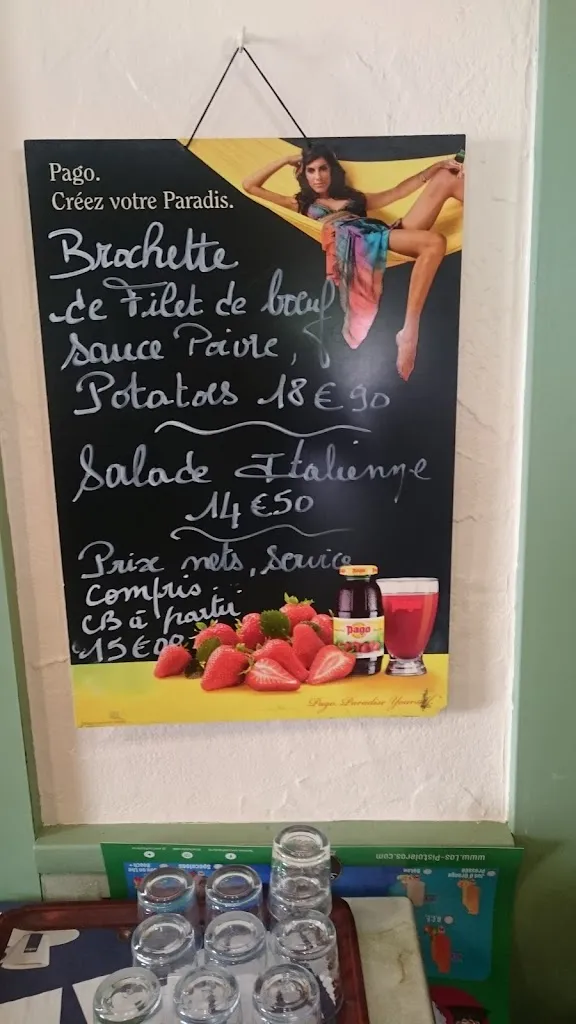 Pago.
Créez votre Paradis.
Brochette
de Filet de bœuf
sauce Poivre,
Potatoes 18€90
Salade Italienne
14€50
Prix nets, service
compris...
CB à partir
15€00
Pago
Pago
Pago. Paradise Yourself
www.Los-Pistoleros.com